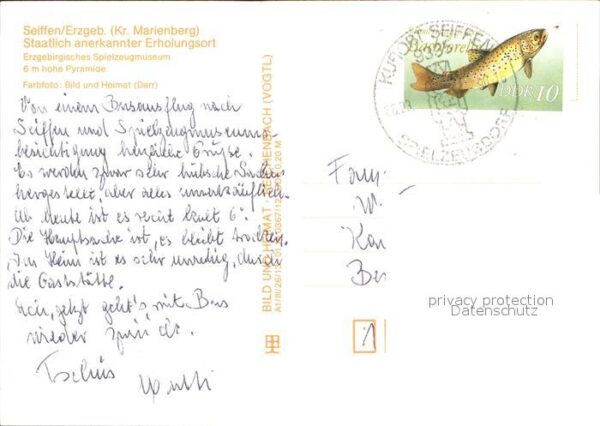 Seiffen/Erzgeb. (Kr. Marienberg)
Staatlich anerkannter Erholungsort
Erzgebirgisches Spielzeugmuseum
6 m hohe Pyramide
Farbfoto: Bild und Heimat (Darr)
Von einem Busausflug nach
Seiffen und Spielzeugmuseums-
besichtigung herzliche Grüße.
Es werden zwar sehr hübsche Sachen
hergestellt, aber alles unverkäuflich.
Ab heute ist es recht kalt 6°.
Die Hauptsache ist, es bleibt trocken.
Im Heim ist es sehr unruhig, durch
die Gaststätte.
jetzt geht's mit Bus
wieder zurück.
Tschüs
BILD UND HEIMAT REICHENBACH (VOGTL)
KURORT SEIFFEN
SPIELZEUGDORF
Bachforelle
DDR 10
Fam.
W.
Kar
Ber
1
privacy protection
Datenschutz